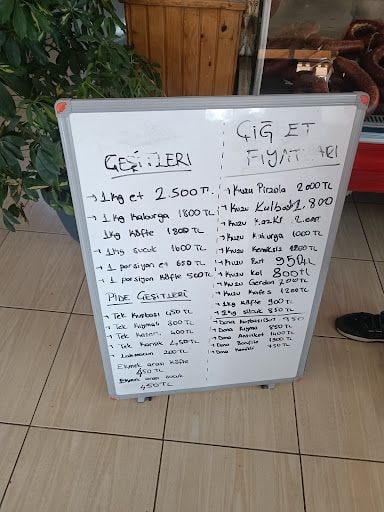 ÇEŞİTLERİ
→ 1 kg et 2.500 TL
→ 1 kg Kaburga 1800 TL
1 kg Köfte 1800 TL
→ 1 kg Sucuk 1600 TL
→ 1 porsiyon et 650 TL
→ 1 porsiyon Köfte 500 TL
PİDE ÇEŞİTLERİ
→ Tek Kuşbaşı 450 TL
→ Tek Kıymalı 400 TL
→ Tek Kaşarlı 400 TL
→ Tek Karışık 450 TL
→ Lahmacun 200 TL
Ekmek arası Köfte
450 TL
Ekmek arası Sucuk
450 TL
ÇİĞ ET
FİYATLARI
→ Kuzu Pirzola 2000 TL
→ Kuzu Külbastı 1.800
→ Kuzu
→ Kuzu Kaburga 1000 TL
→ Kuzu Kemiksiz 1200 TL
→ Kuzu But 950 TL
→ Kuzu Kol 800 TL
→ Kuzu Gerdan 700 TL
→ Kuzu Kafes 1200 TL
→ 1 kg Köfte 900 TL
→ 1 kg Sucuk 850 TL
→ Dana Kuşbaşı 950
→ Dana Kıyma 850 TL
→ Dana Antrikot 1600 TL
→ Dana Bonfile 1800 TL
→ Dana TL